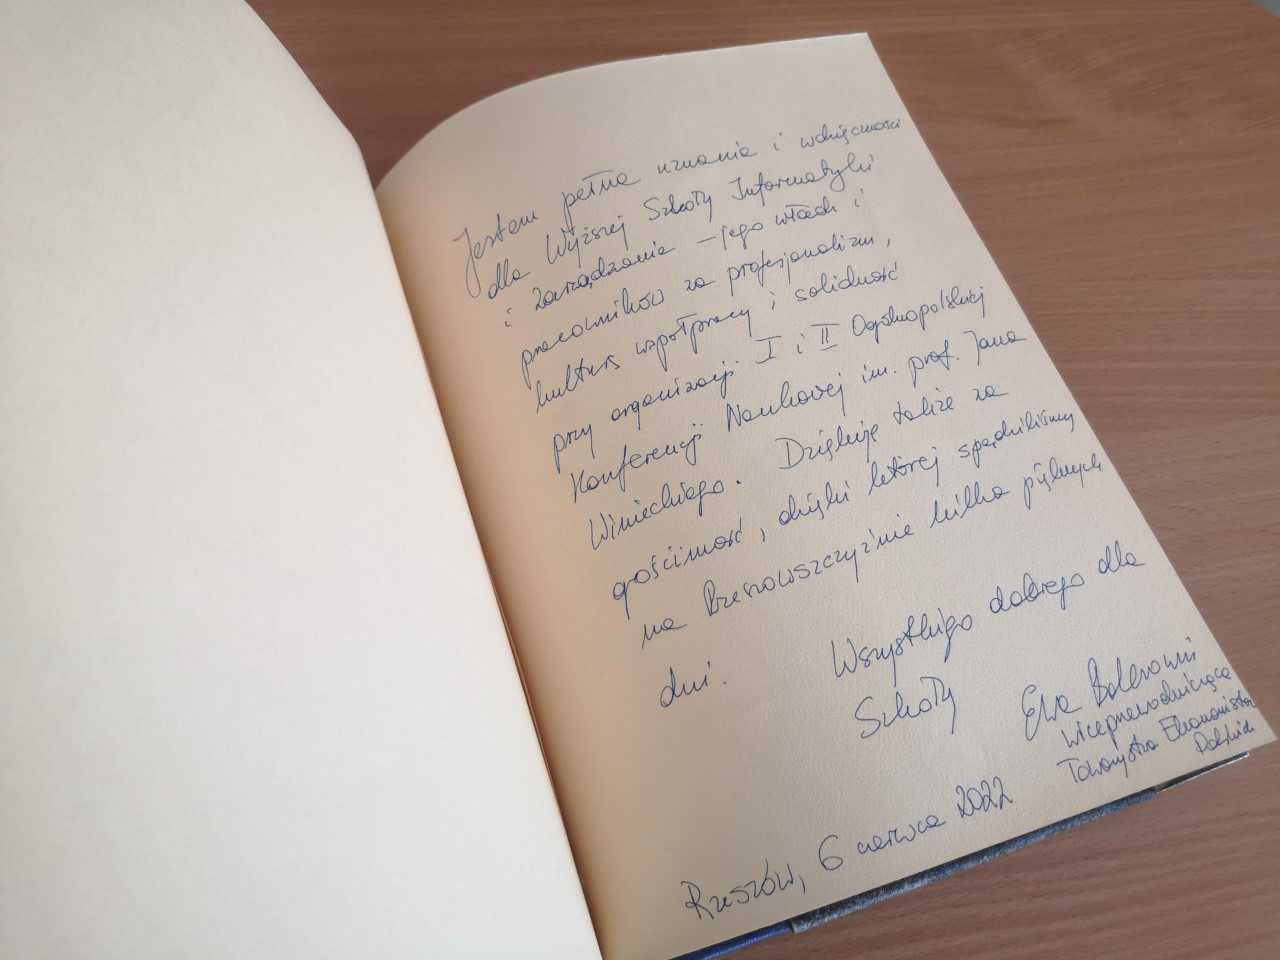 Jestem pełna uznania i wdzięczności
dla Wyższej Szkoły Informatyki
i Zarządzania – jego władz i
pracowników za profesjonalizm,
kulturę współpracy i solidność
przy organizacji I i II Ogólnopolskiej
Konferencji Naukowej im. prof. Jana
Winieckiego. Dziękuję także za
gościnność, dzięki której spędziliśmy
na Rzeszowszczyźnie kilka pięknych
dni. Wszystkiego dobrego dla
Szkoły
Ewa
wiceprzewodnicząca
Towarzystwa Ekonomistów
Polskich
Rzeszów, 6 czerwca 2022